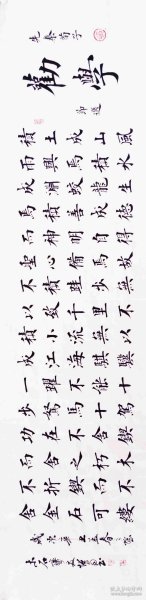 先秦荀子
勸學
節選
積土成山風
雨興焉積水
成淵蛟龍生
焉積善成德
而神明自得
聖心備焉故
不積跬步無
以至千里不
積小流無以
成江海騏驥
一躍不能十
步駑馬十駕
功在不舍鍥
而舍之朽木
不折鍥而不
舍金石可鏤